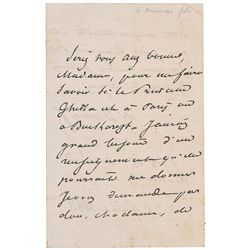 A. Dumas fils
Serez vous assez bonne,
Madame, pour me faire
savoir si le Prince
Ghika est à Paris ou
à Bucharest. J'aurais
grand besoin d'un
renseignement qu'il
pourrait me donner
Je vous demande pas
don, Madame, de